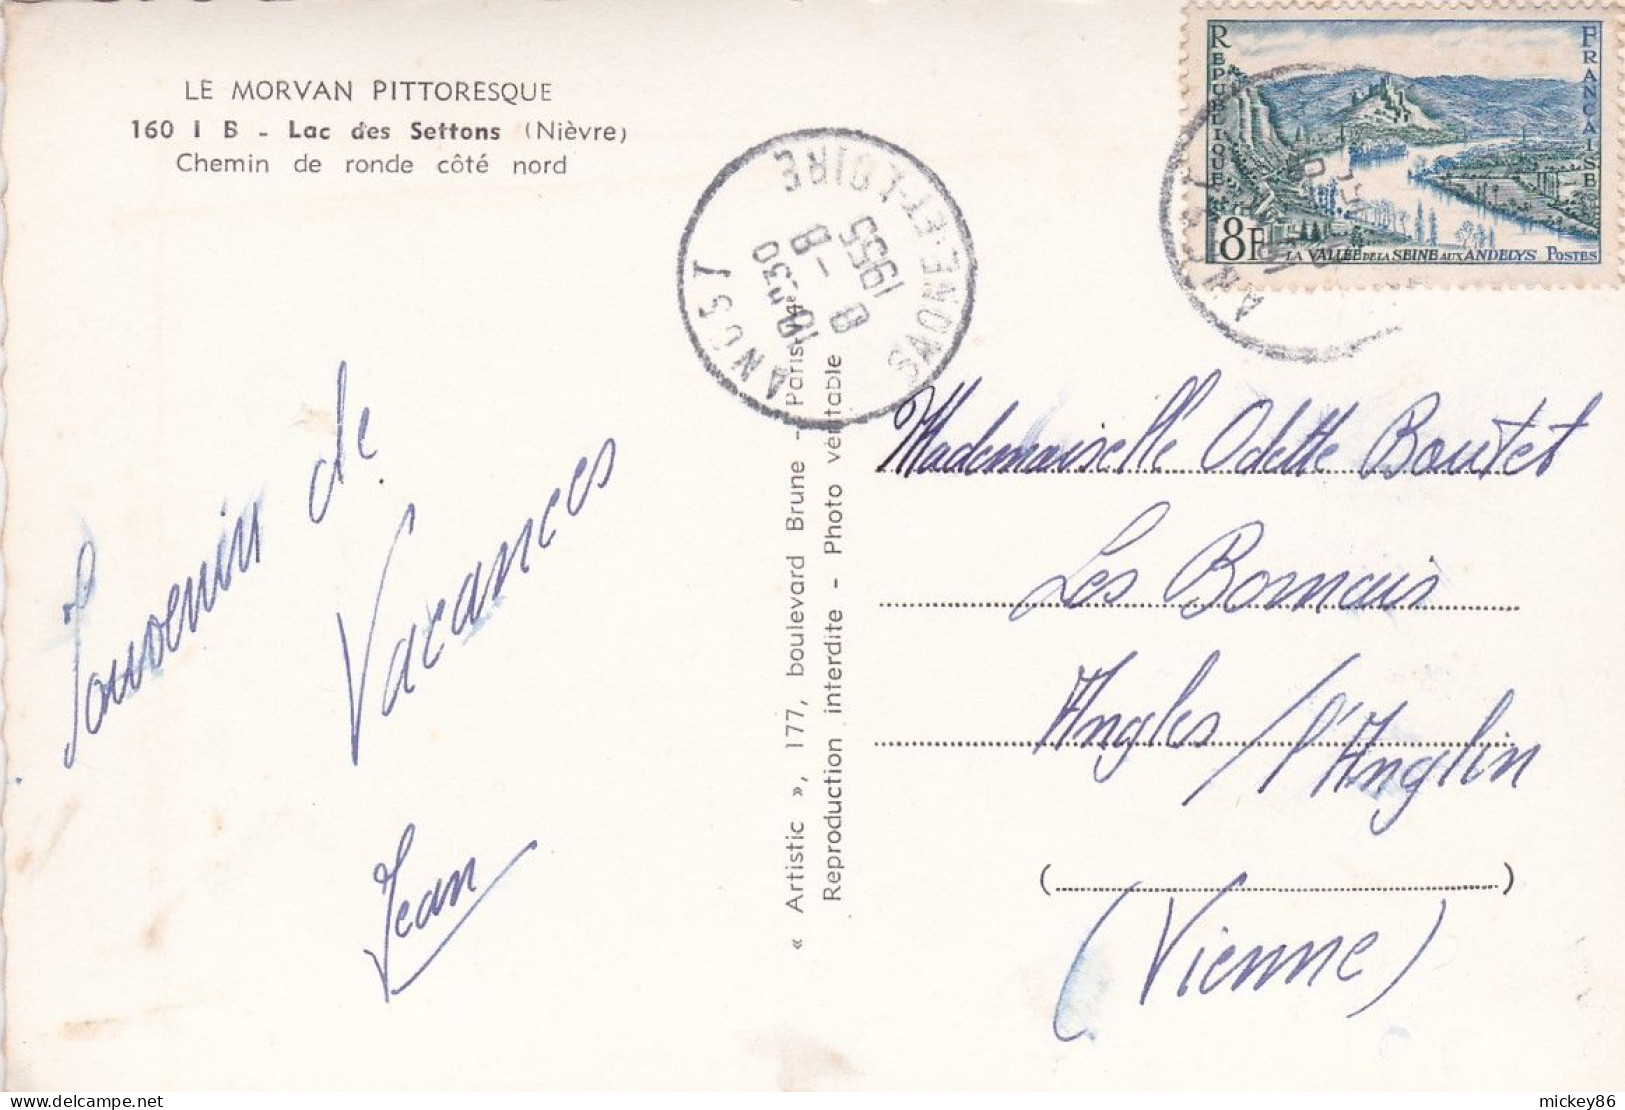 LE MORVAN PITTORESQUE
160 I B - Lac des Settons (Nièvre)
Chemin de ronde côté nord
ANOST
18H30
8 - 8
1955
SAONE-ET-LOIRE
RÉPUBLIQUE FRANÇAISE
8F
LA VALLÉE DE LA SEINE AUX ANDELYS POSTES
Souvenir de
Vacances
Jean
« Artistic », 177, boulevard Brune - Paris-14e
Reproduction interdite - Photo véritable
Mademoiselle Odette Boutet
Les Bornais
Angles / l'Anglin
(Vienne)
mickey86